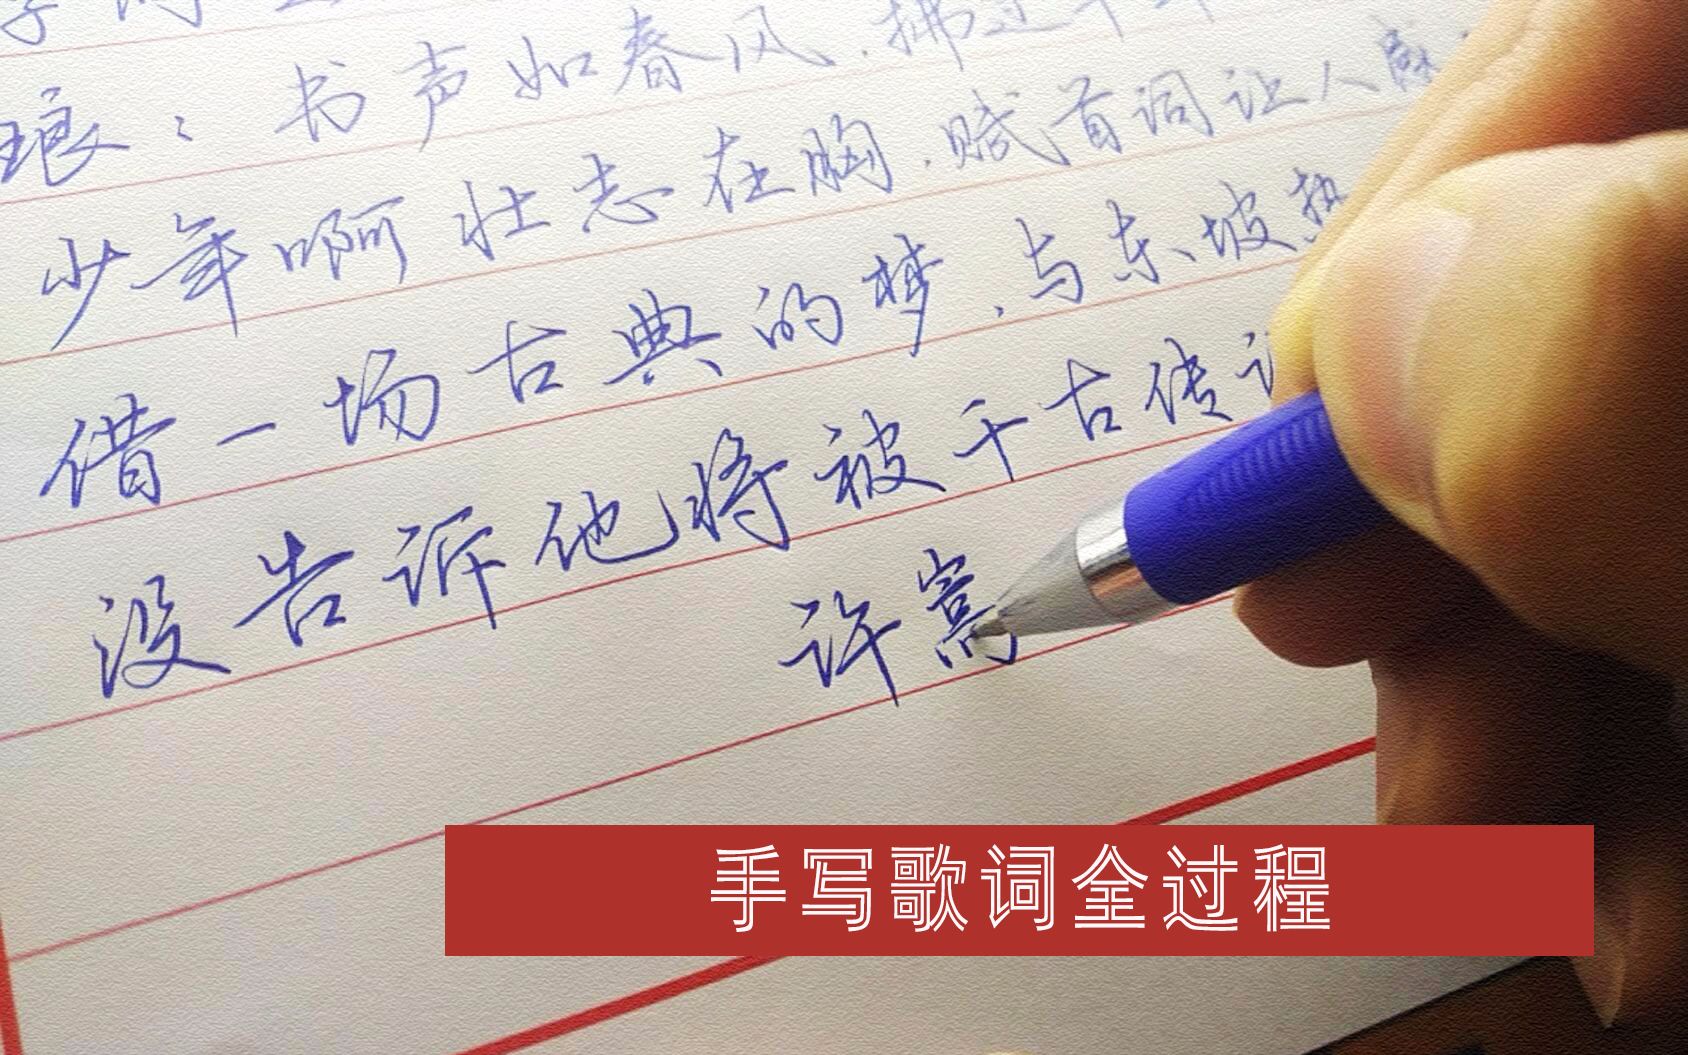 琅：书声如春风，拂过
少年啊壮志在胸，赋首词让人
借一场古典的梦，与东坡热
没告诉他将被千古传
许嵩
手写歌词全过程